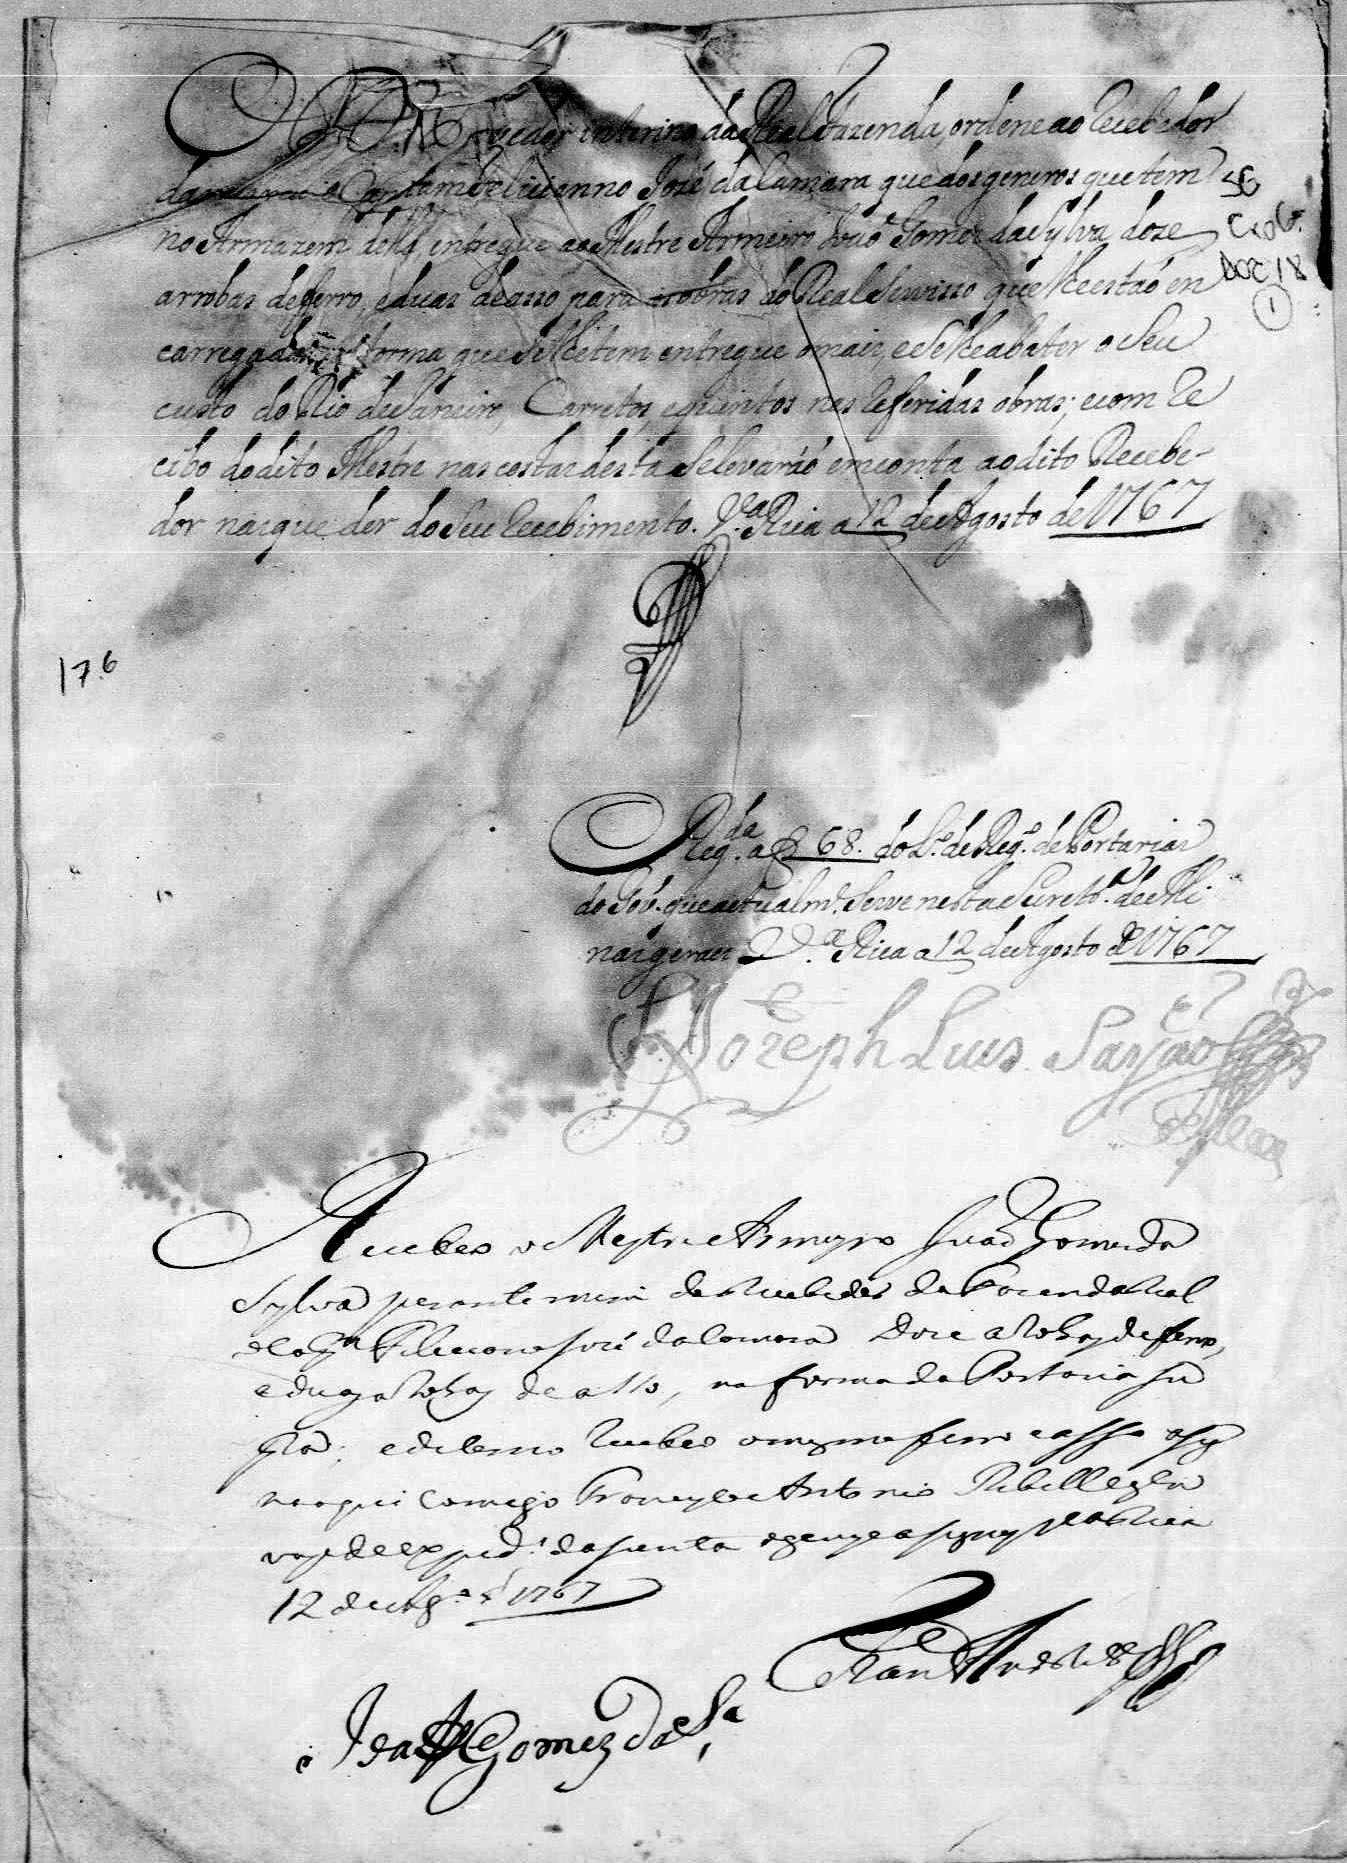 O D.or Provedor interino da Real Fazenda, ordene ao Recebedor
da mesma o Capitam Feliciano José da Camara que dos generos que tem
no Armazem della entregue ao Mestre Armeiro João Gomes da Sylva doze
arrobas de ferro, e duas de asso para obras do Real Servisso que lhe estão en
carregadas forma que se lhe tem entregue o mais, e se lhe abater o seu
custo do Rio de Janeiro, Carretos, e quintos nas referidas obras; e com Re
cibo do dito Mestre nas costas desta se levará em conta ao dito Recebe-
dor nas que der do seu recebimento. V.a Rica a 12 de Agosto de 1767
SG
Cx 06
DOC 18
1
176
Reg.da a f 68. do L.o de Reg.o de Portarias
do Gov. que actualm.te serve nesta Secret.a de Mi
nas geraes V.a Rica a 12 de Agosto de 1767
Jozeph Luis Sayão
Recebeo o Mestre Armeyro João Gomes da
Sylva perante mim do Recebedor da Fazenda Real
o Cap.m Feliciano José da Camara Doze arrobas de ferro,
e duas arrobas de asso, na forma da Portaria su
pra; e de como recebeo o mesmo ferro e asso asig
na aqui comigo Francisco Antonio Rebello
da Junta V.a Rica
12 de Ag.to de 1767
Fran.co An.to Reb.o
João Gomez da S.a